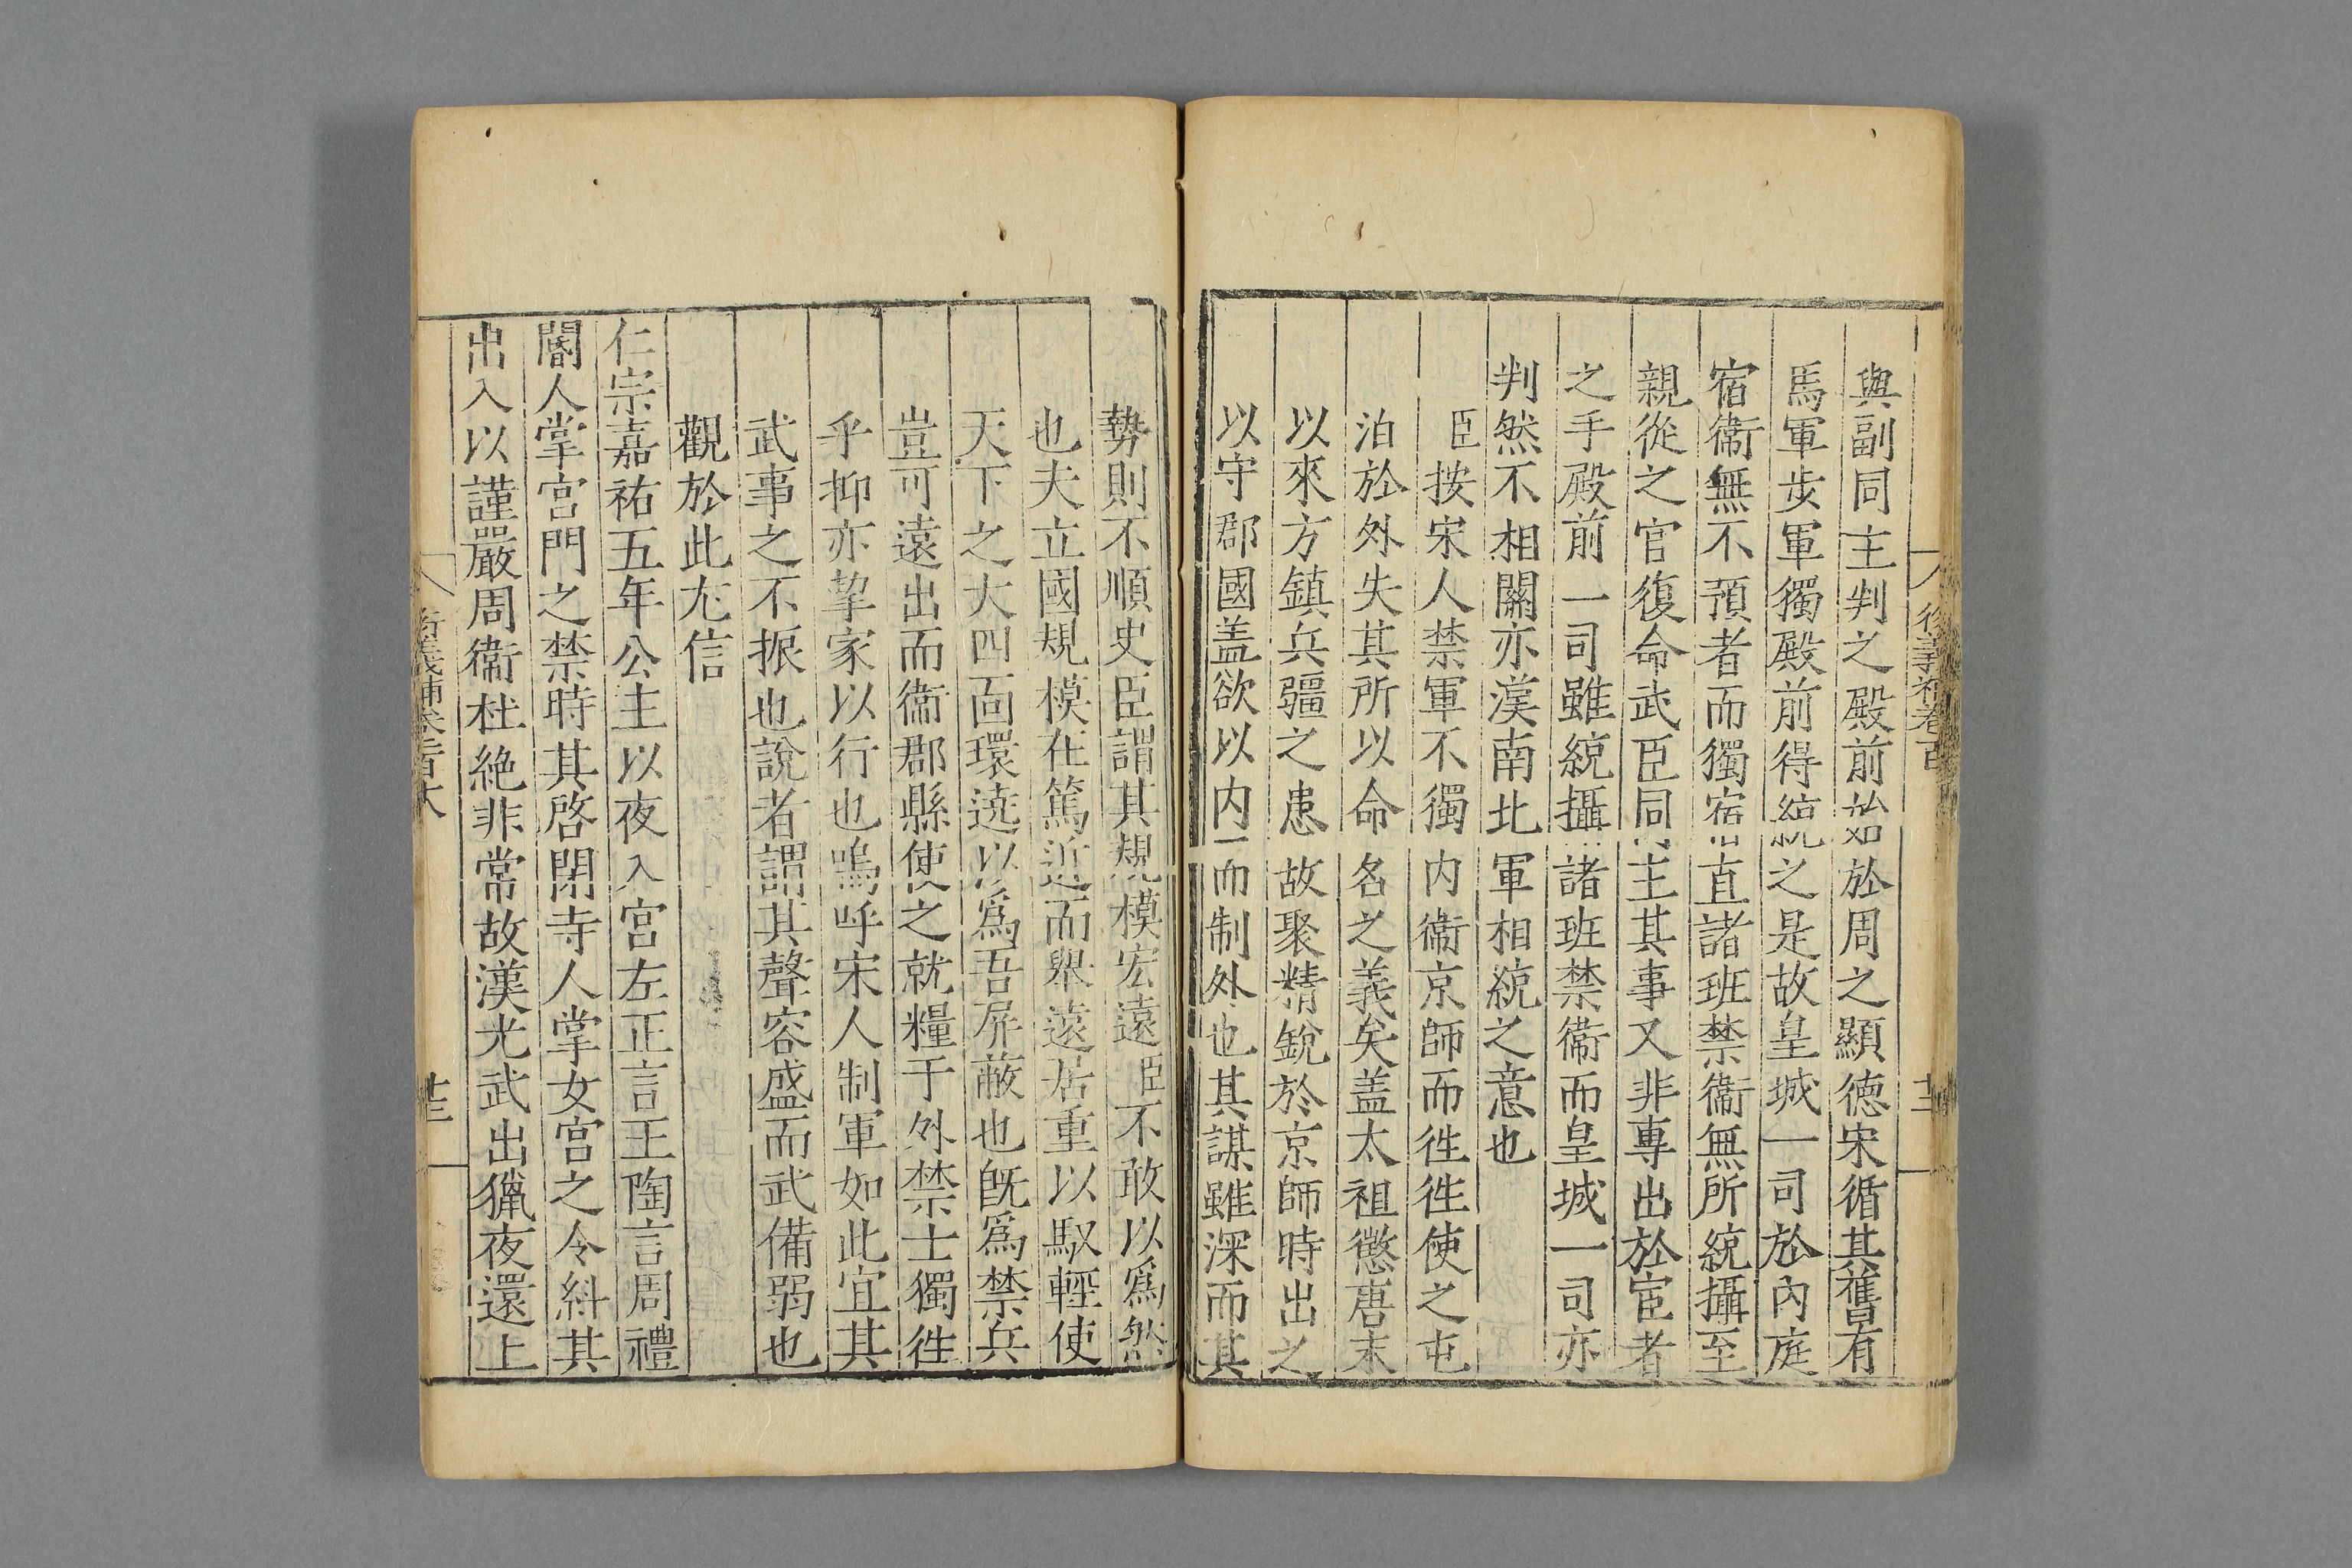 與副同主判之殿前始於周之顯德宋循其舊有
馬軍步軍獨殿前得綂之是故皇城一司於內庭
宿衞無不預者而獨宿直諸班禁衞無所綂攝至
親從之官復命武臣同主其事又非專出於宦者
之手殿前一司雖綂攝諸班禁衞而皇城一司亦
判然不相關亦漢南北軍相綂之意也
臣按宋人禁軍不獨内衞京師而徃徃使之屯
泊於外失其所以命名之義矣盖太祖懲唐末
以來方鎮兵疆之患故聚精銳於京師時出之
以守郡國盖欲以内而制外也其謀雖深而其
勢則不順史臣謂其規模宏遠臣不敢以爲然
也夫立國規模在篤近而舉遠居重以馭輕使
天下之大四面環遶以爲吾屏蔽也旣爲禁兵
豈可遠出而衞郡縣使之就糧于外禁士獨徃
乎抑亦挈家以行也嗚呼宋人制軍如此宜其
武事之不振也說者謂其聲容盛而武備弱也
觀於此尤信
仁宗嘉祐五年公主以夜入宮左正言王陶言周禮
閽人掌宮門之禁時其啓閉寺人掌女宮之令糾其
出入以謹嚴周衞杜絶非常故漢光武出獵夜還上